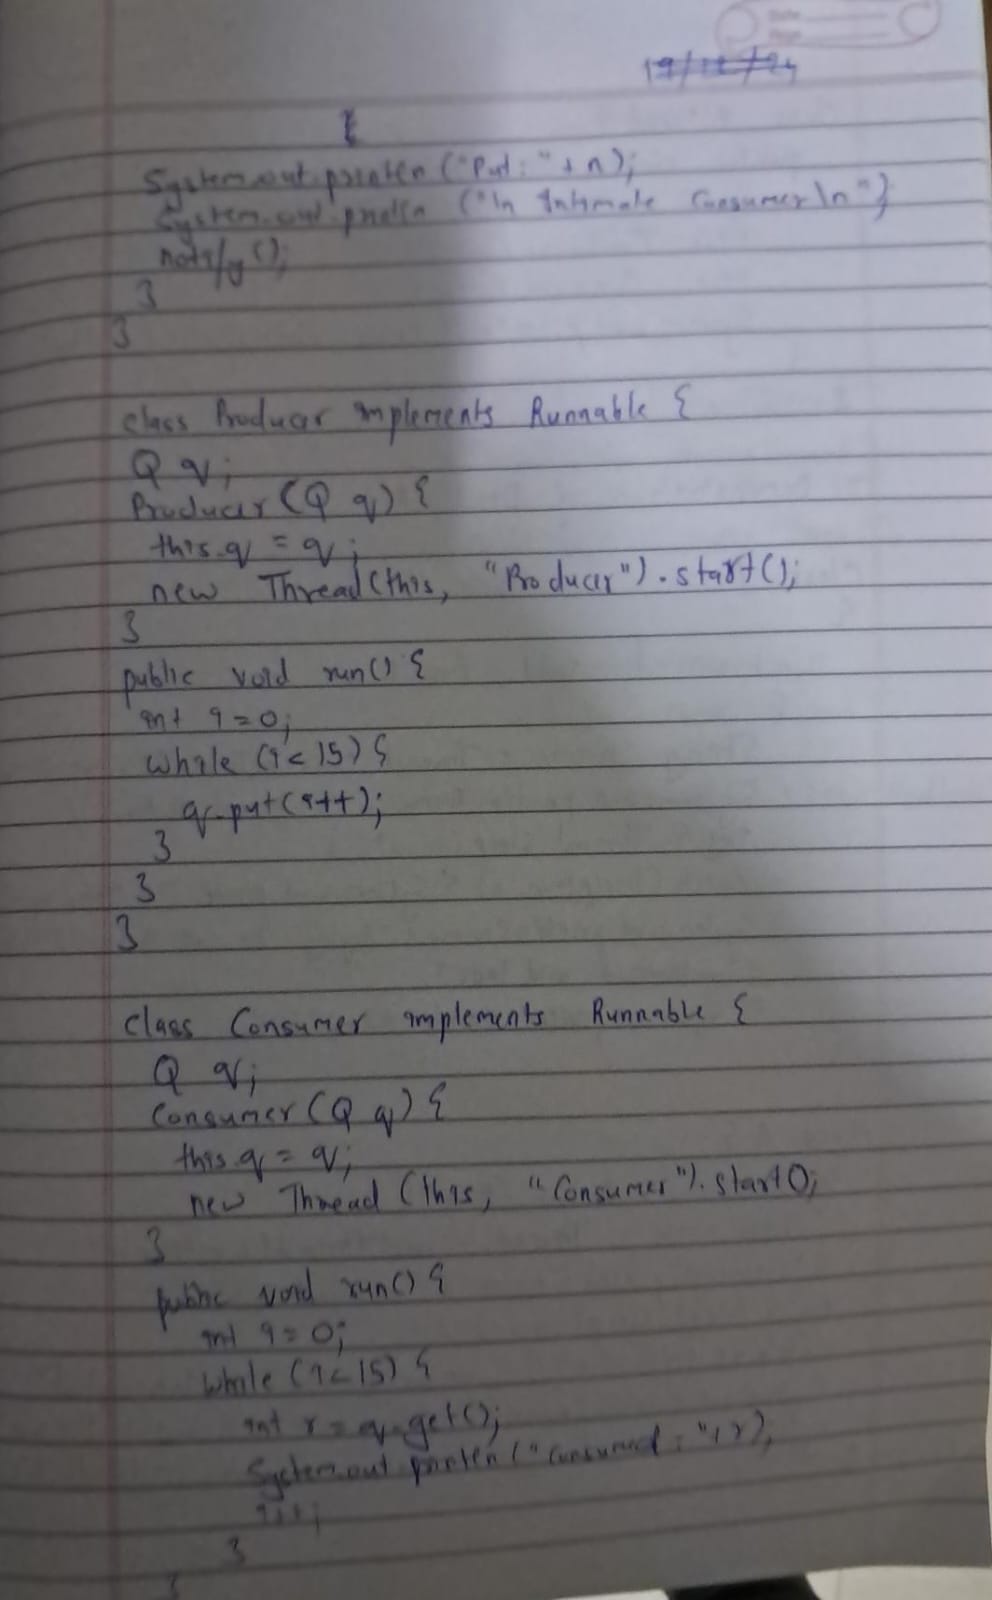 19/12/24
{
System.out.println ("Put : " + n);
System.out.println ("\n Intimate Consumer \n");
notify ();
}
}
class Producer implements Runnable {
Q q;
Producer (Q q) {
this.q = q;
new Thread (this, "Producer").start();
}
public void run() {
int i=0;
while (i<15) {
q.put(i++);
}
}
}
class Consumer implements Runnable {
Q q;
Consumer (Q q) {
this.q = q;
new Thread (this, "Consumer").start();
}
public void run() {
int i=0;
while (i<15) {
int r = q.get();
System.out println ("Consumed : "+ r);
i++;
}
}